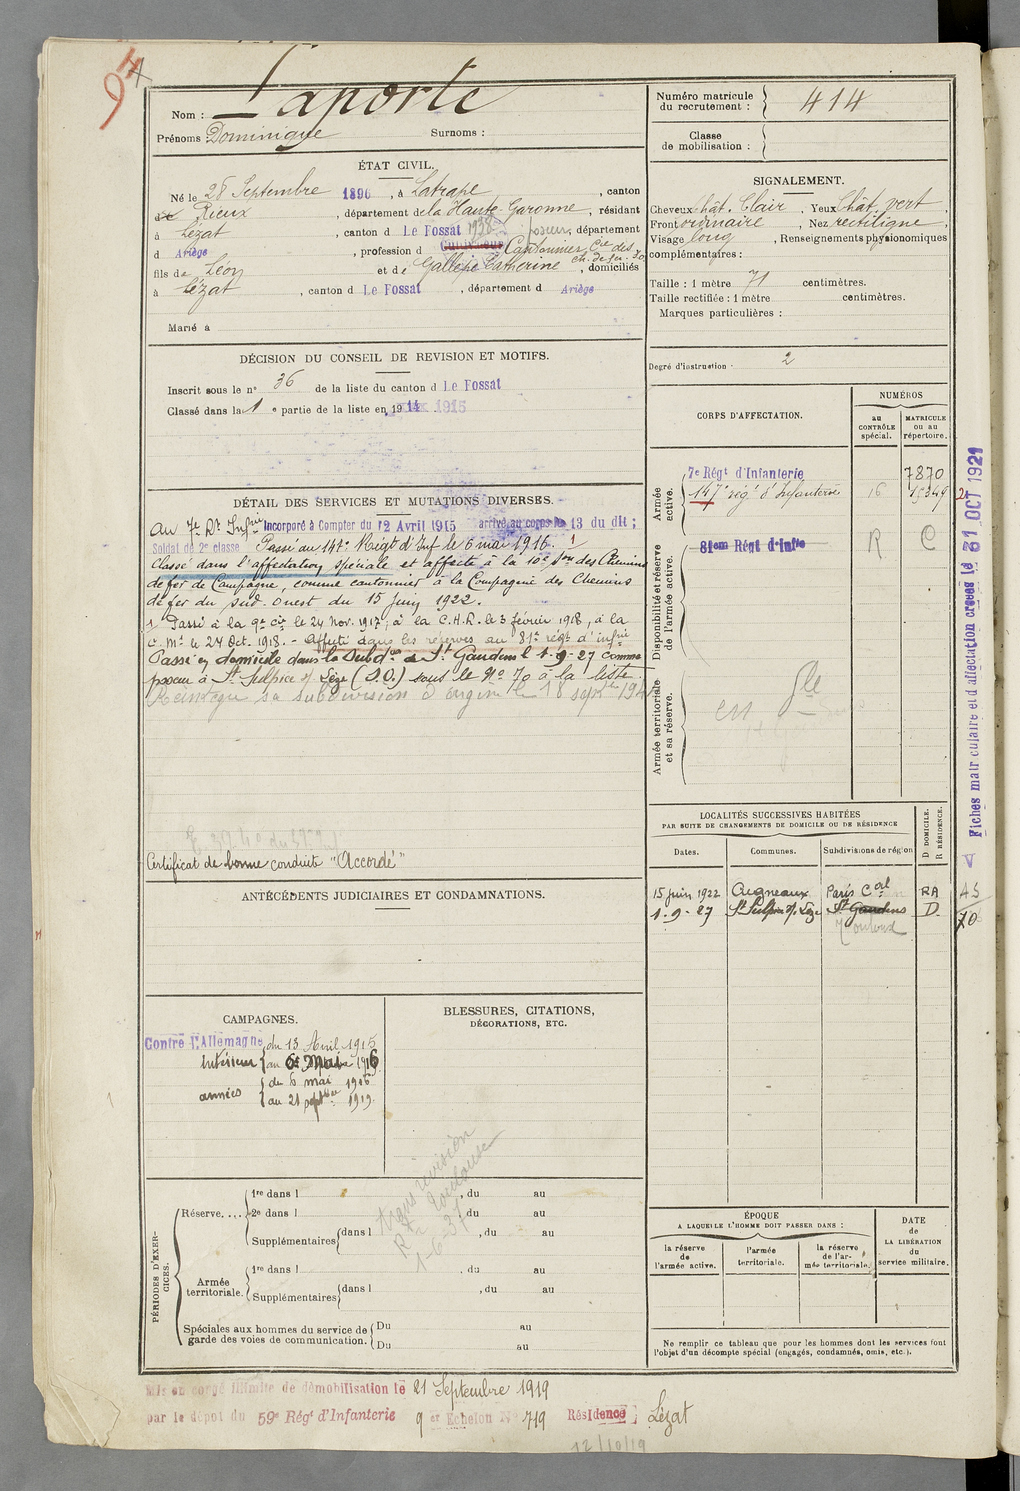 97
Nom : Laporte
Prénoms : Dominique Surnoms :
Numéro matricule du recrutement : 414
Classe de mobilisation :
ÉTAT CIVIL.
Né le 28 Septembre 1896, à Latrape, canton
de Rieux, département de la Haute-Garonne, résidant
à Lézat, canton d Le Fossat 1938 poseur, département
d Ariège, profession d Cultivateur Cantonnier Cie des ch. de fer
fils de Léon et de Gallépe Catherine, domiciliés
à Lézat, canton d Le Fossat, département d Ariège
Marié à
SIGNALEMENT.
Cheveux chât. Clair, Yeux Chât. vert,
Front ordinaire, Nez rectiligne,
Visage long, Renseignements physionomiques
complémentaires :
Taille : 1 mètre 71 centimètres.
Taille rectifiée : 1 mètre centimètres.
Marques particulières :
Degré d'instruction : 2
DÉCISION DU CONSEIL DE REVISION ET MOTIFS.
Inscrit sous le n° 36 de la liste du canton d Le Fossat
Classé dans la 1 e partie de la liste en 1914 1915
DÉTAIL DES SERVICES ET MUTATIONS DIVERSES.
Au 7e Rt Infrie Incorporé à Compter du 12 Avril 1915 arrivé au corps le 13 du dit ;
Soldat de 2e classe Passé au 147e Régt d'Inf le 6 mai 1916. 1
Classé dans l'affectation spéciale et affecté à la 10e Son des Chemins
de fer de Campagne, comme cantonnier à la Compagnie des Chemins
de fer du Sud-Ouest du 15 juin 1922.
1 Passé à la 9e Cie le 24 Nov. 1917, à la C.H.R. le 3 février 1918, à la
C. M. 1 le 24 Oct. 1918. - Affecté dans les réserves au 81e régt d'infie
Passé en domicile dans la Subdon de St Gaudens le 1-9-27 comme
poseur à St Sulpice s/ Lèze (S.O.) sous le No 70 à la liste.
Réintègre sa subdivision d'origine le 18 septbre 194
Certificat de bonne conduite "Accordé"
CORPS D'AFFECTATION.
NUMÉROS
au CONTRÔLE spécial.
MATRICULE ou au répertoire.
Armée active.
7e Régt d'Infanterie 7870
147e régt d'Infanterie 16 15349
Disponibilité et réserve de l'armée active.
81em Régt d'Infie R C
Armée territoriale et sa réserve.
Fiches matriculaire et d'affectation créées le 31 OCT 1921
LOCALITÉS SUCCESSIVES HABITÉES
PAR SUITE DE CHANGEMENTS DE DOMICILE OU DE RÉSIDENCE
Dates. Communes. Subdivisions de région D DOMICILE. R RÉSIDENCE.
15 juin 1922 Aigneaux Paris Cal RA 45
1-9-27 St Sulpice s/ Lèze St Gaudens D. 70
Toulouse
ANTÉCÉDENTS JUDICIAIRES ET CONDAMNATIONS.
CAMPAGNES.
Contre l'Allemagne du 13 Avril 1915
Intérieur au 5 Mai 1916
armées du 6 mai 1916
au 21 septbre 1919.
BLESSURES, CITATIONS,
DÉCORATIONS, ETC.
trans révision
Rn Toulouse
1-6-37
PÉRIODES D'EXERCICES.
Réserve.... 1re dans l , du au
2e dans l , du au
Supplémentaires dans l , du au
Armée territoriale. 1re dans l , du au
Supplémentaires dans l , du au
Spéciales aux hommes du service de garde des voies de communication. Du au
Du au
ÉPOQUE
A LAQUELLE L'HOMME DOIT PASSER DANS :
la réserve de l'armée active.
l'armée territoriale.
la réserve de l'armée territoriale.
DATE de LA LIBÉRATION du service militaire.
Ne remplir ce tableau que pour les hommes dont les services font
l'objet d'un décompte spécial (engagés, condamnés, omis, etc.).
Mis en congé illimité de démobilisation le 21 Septembre 1919
par le dépôt du 59e Régt d'Infanterie 9 er Echelon N° 719 Résidence Lézat
12/10/19